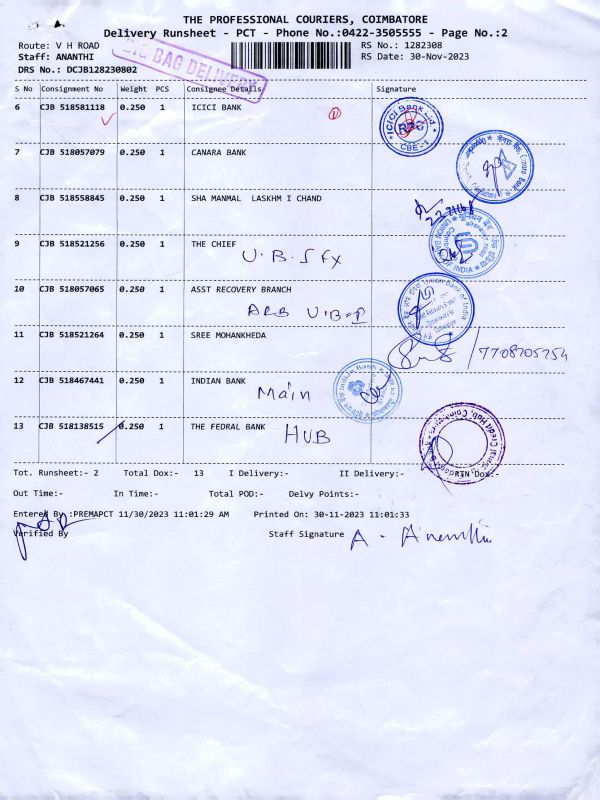 THE PROFESSIONAL COURIERS, COIMBATORE
Delivery Runsheet - PCT - Phone No.:0422-3505555 - Page No.:2
Route: V H ROAD RS No.: 1282308
Staff: ANANTHI BIG BAG DELIVERY RS Date: 30-Nov-2023
DRS No.: DCJB128230802
S No Consignment No Weight PCS Consignee Details Signature
6 CJB 518581118 0.250 1 ICICI BANK 1 ICICI Bank Ltd CBE - 1
7 CJB 518057079 0.250 1 CANARA BANK
8 CJB 518558845 0.250 1 SHA MANMAL LASKHM I CHAND
9 CJB 518521256 0.250 1 THE CHIEF
U.B.I
10 CJB 518057065 0.250 1 ASST RECOVERY BRANCH Union Bank of India
ARB U.B.I
11 CJB 518521264 0.250 1 SREE MOHANKHEDA
7708205254
12 CJB 518467441 0.250 1 INDIAN BANK Indian Bank
Main
13 CJB 518138515 0.250 1 THE FEDRAL BANK Credit Hub, Coimbatore
HUB
Tot. Runsheet:- 2 Total Dox:- 13 I Delivery:- II Delivery:- RTN Dox:-
Out Time:- In Time:- Total POD:- Delvy Points:-
Entered By :PREMAPCT 11/30/2023 11:01:29 AM Printed On: 30-11-2023 11:01:33
Verified By Staff Signature A. Ananthi